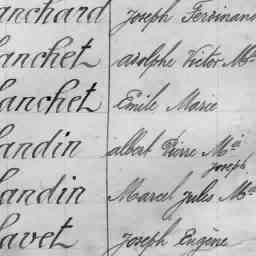 anchard Joseph Ferdinand
lanchet adolphe Victor Mie
lanchet Emile Marie
landin albert Pierre Mie
Joseph
landin Marcel Jules Mie
lavet Joseph Eugène